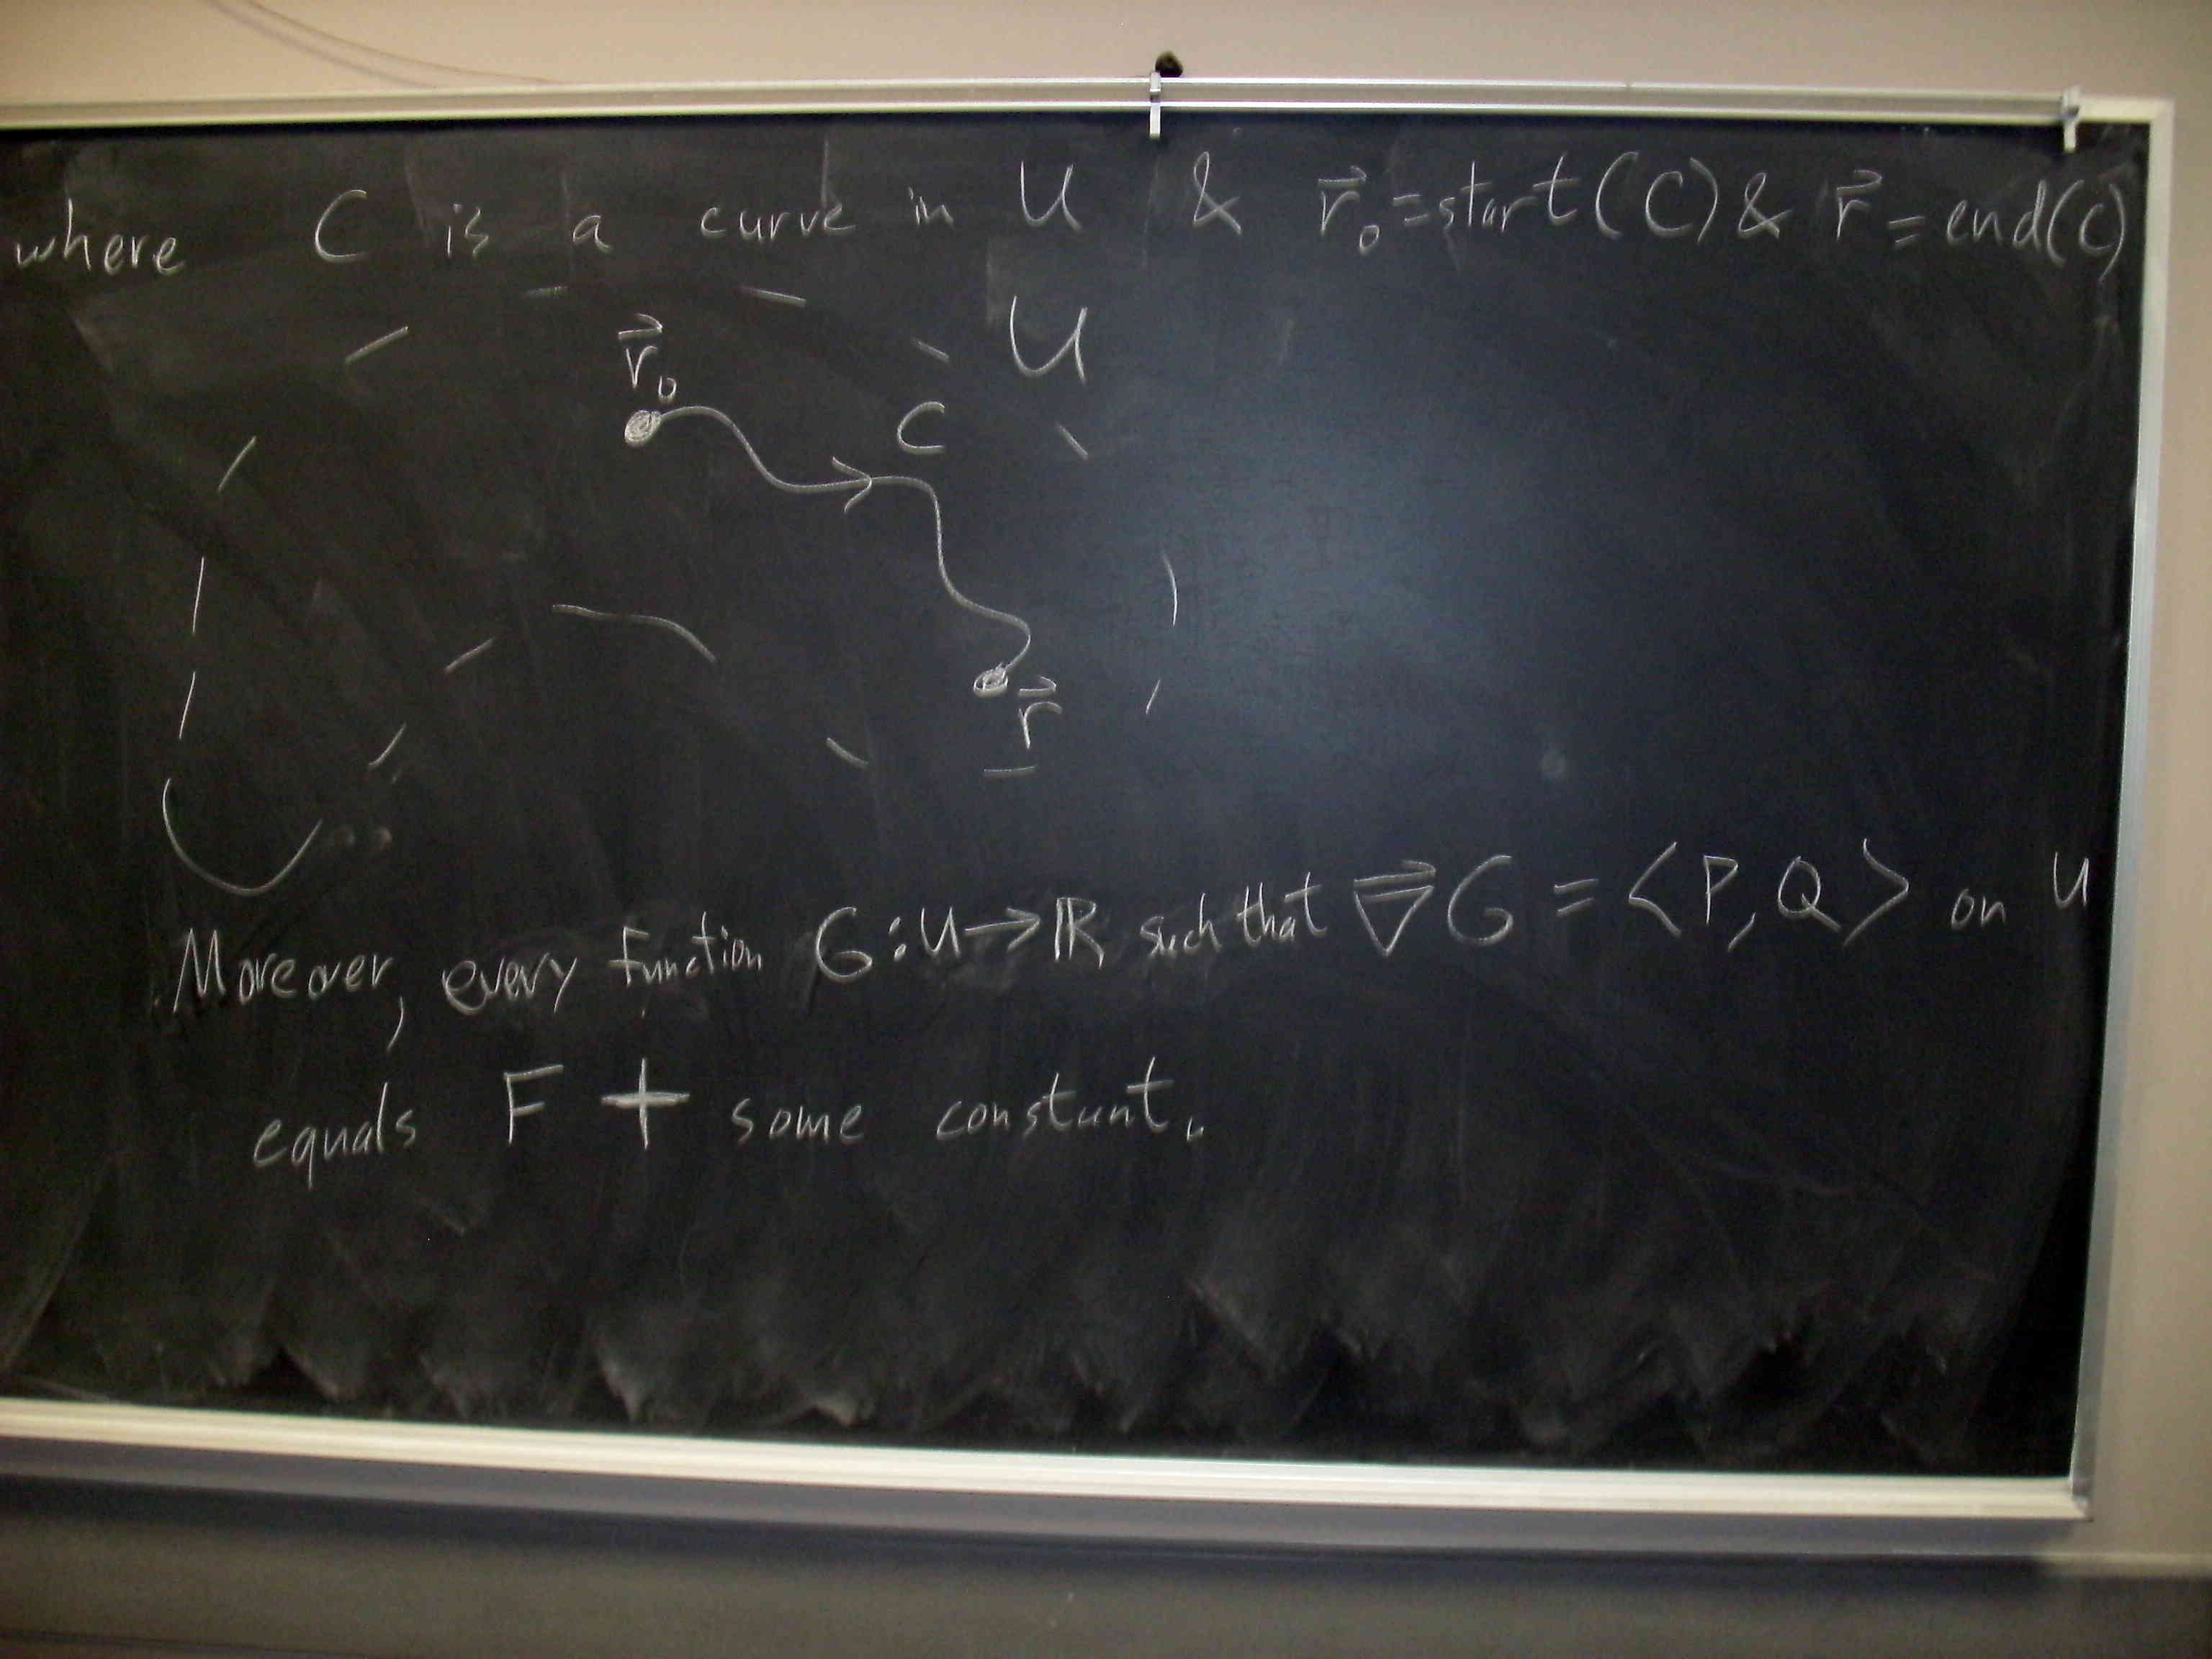 where C is a curve in U & r⃗₀=start(C) & r⃗=end(C)
U
r⃗₀
C
r⃗
Moreover, every function G:U→ℝ such that ∇⃗G = <P,Q> on U
equals F + some constant.